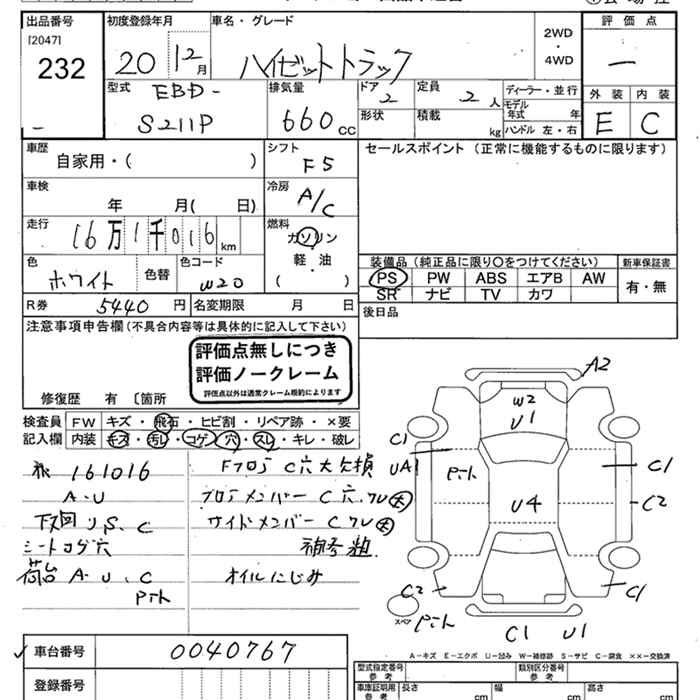 出品番号 初度登録年月 車名・グレード 評価点
[2047]
232
20 12月 ハイゼットトラック 2WD・4WD ―
型式 排気量 ドア 定員 ディーラー・並行 外装 内装
EBD- 2 2人 モデル年式 年
S211P 660cc 形状 積載 kg ハンドル 左・右 E C
車歴 シフト セールスポイント (正常に機能するものに限ります)
自家用・( ) F5
車検 冷房
年 月( 日) A/C
走行 燃料
16万1千016km ガソリン
軽・油
( )
装備品 (純正品に限り〇をつけてください) 新車保証書
色 色替 色コード PS PW ABS エアB AW 有・無
ホワイト W20 SR ナビ TV カワ
R券 5440円 名変期限 月 日 後日品
注意事項申告欄 (不具合内容等は具体的に記入して下さい)
評価点無しにつき
評価ノークレーム
評価点以外は通常クレーム規約によります
修復歴 有 〔箇所
検査員 FW キズ・飛石・ヒビ割・リペア跡・×要
記入欄 内装 キズ・汚レ・コゲ・穴・スレ・キレ・破レ
161016 Fフロア C穴大欠損
A・U フロアメンバー C穴、クレ大
下回リS、C サイドメンバー Cクレ大
シートコゲ穴 補修粗
荷台 A・U、C オイルにじみ
Pキト
A2
W2
U1
C1
UA1
Pキト
C1
C2
U4
C2
C1
スペア Pキト
C1 U1
A―キズ E―エクボ U―凹み W―補修跡 S―サビ C―腐食 ××―交換済
車台番号 0040767
登録番号
型式指定番号 参考 類別区分番号 参考
車庫証明用 参考 長さ cm 幅 cm 高さ cm